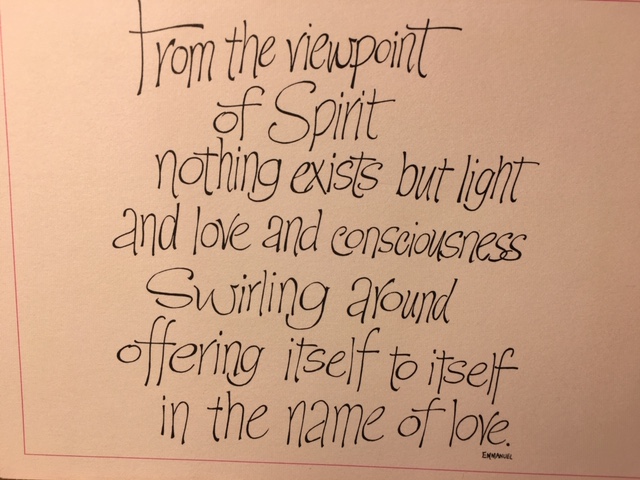 From the viewpoint
of Spirit
nothing exists but light
and love and consciousness
Swirling around
offering itself to itself
in the name of love.
EMMANUEL